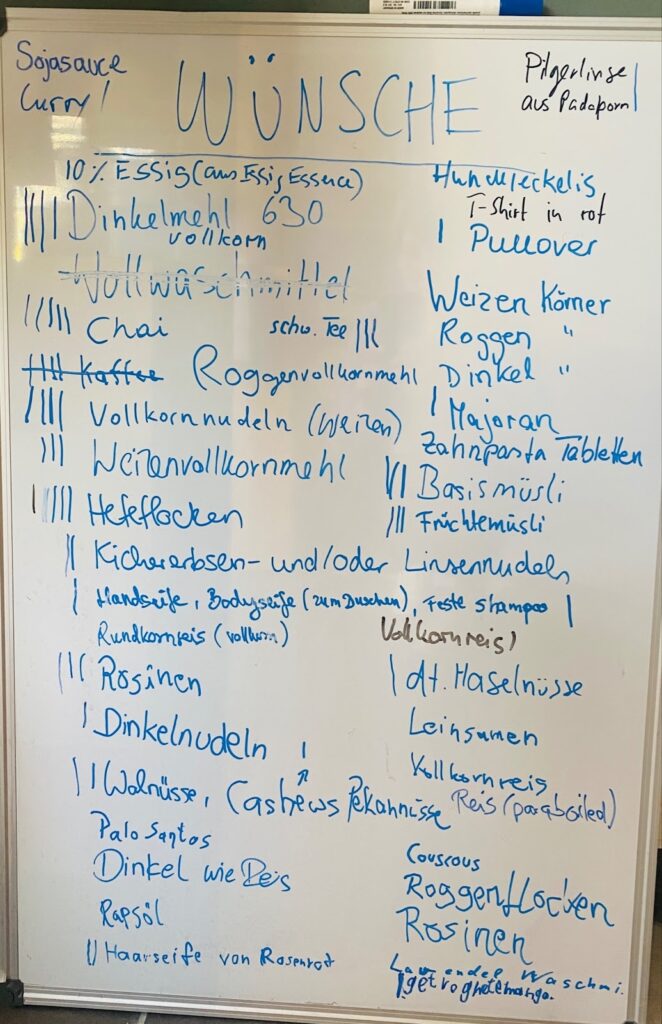 WÜNSCHE
Sojasauce
Curry
Pilgerlinse
aus Padaporn
10% Essig (aus Essig Essence)
|||| Dinkelmehl 630
vollkorn
Wollwaschmittel
||||| Chai
schw. Tee |||
|||| Kaffee
Roggenvollkornmehl
|||| Vollkornnudeln (Weizen)
||| Weizenvollkornmehl
||||| Hefeflocken
|| Kichererbsen- und/oder Linsennudeln
| Handseife, Bodyseife (zum Duschen), Feste Shampoo |
Rundkornreis (vollkorn)
||| Rosinen
| Dinkelnudeln |
|| Walnüsse, Cashews Pekannüsse
Palo Santos
Dinkel wie Reis
Rapsöl
|| Haarseife von Rosenrot
Hundleckelis
T-Shirt in rot
| Pullover
Weizen Körner
Roggen "
Dinkel "
| Majoran
Zahnpasta Tabletten
||| Basismüsli
||| Früchtemüsli
Vollkornreis
| dt. Haselnüsse
Leinsamen
Vollkornreis
Reis (paraboiled)
Couscous
Roggenflocken
Rosinen
Lavendel Waschmi.